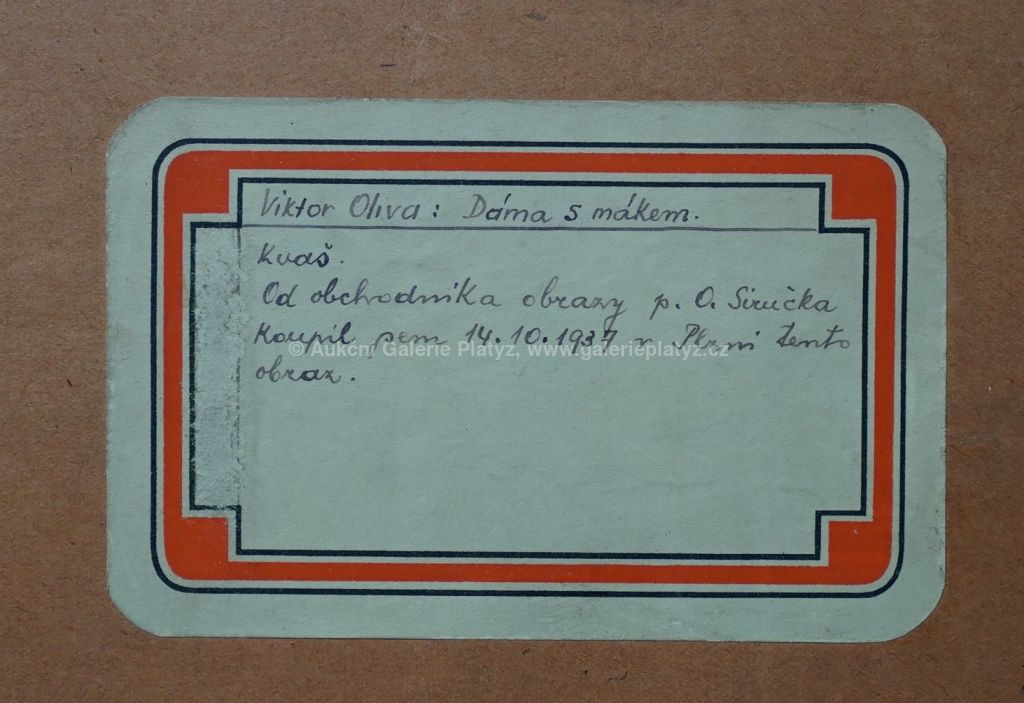 Viktor Oliva: Dáma s mákem.
Kvaš.
Od obchodníka obrazy p. O. Siručka
Koupil jsem 14.10.1937 v Plzni tento
obraz.
© Aukcní Galerie Platyz, www.galerieplatyz.cz